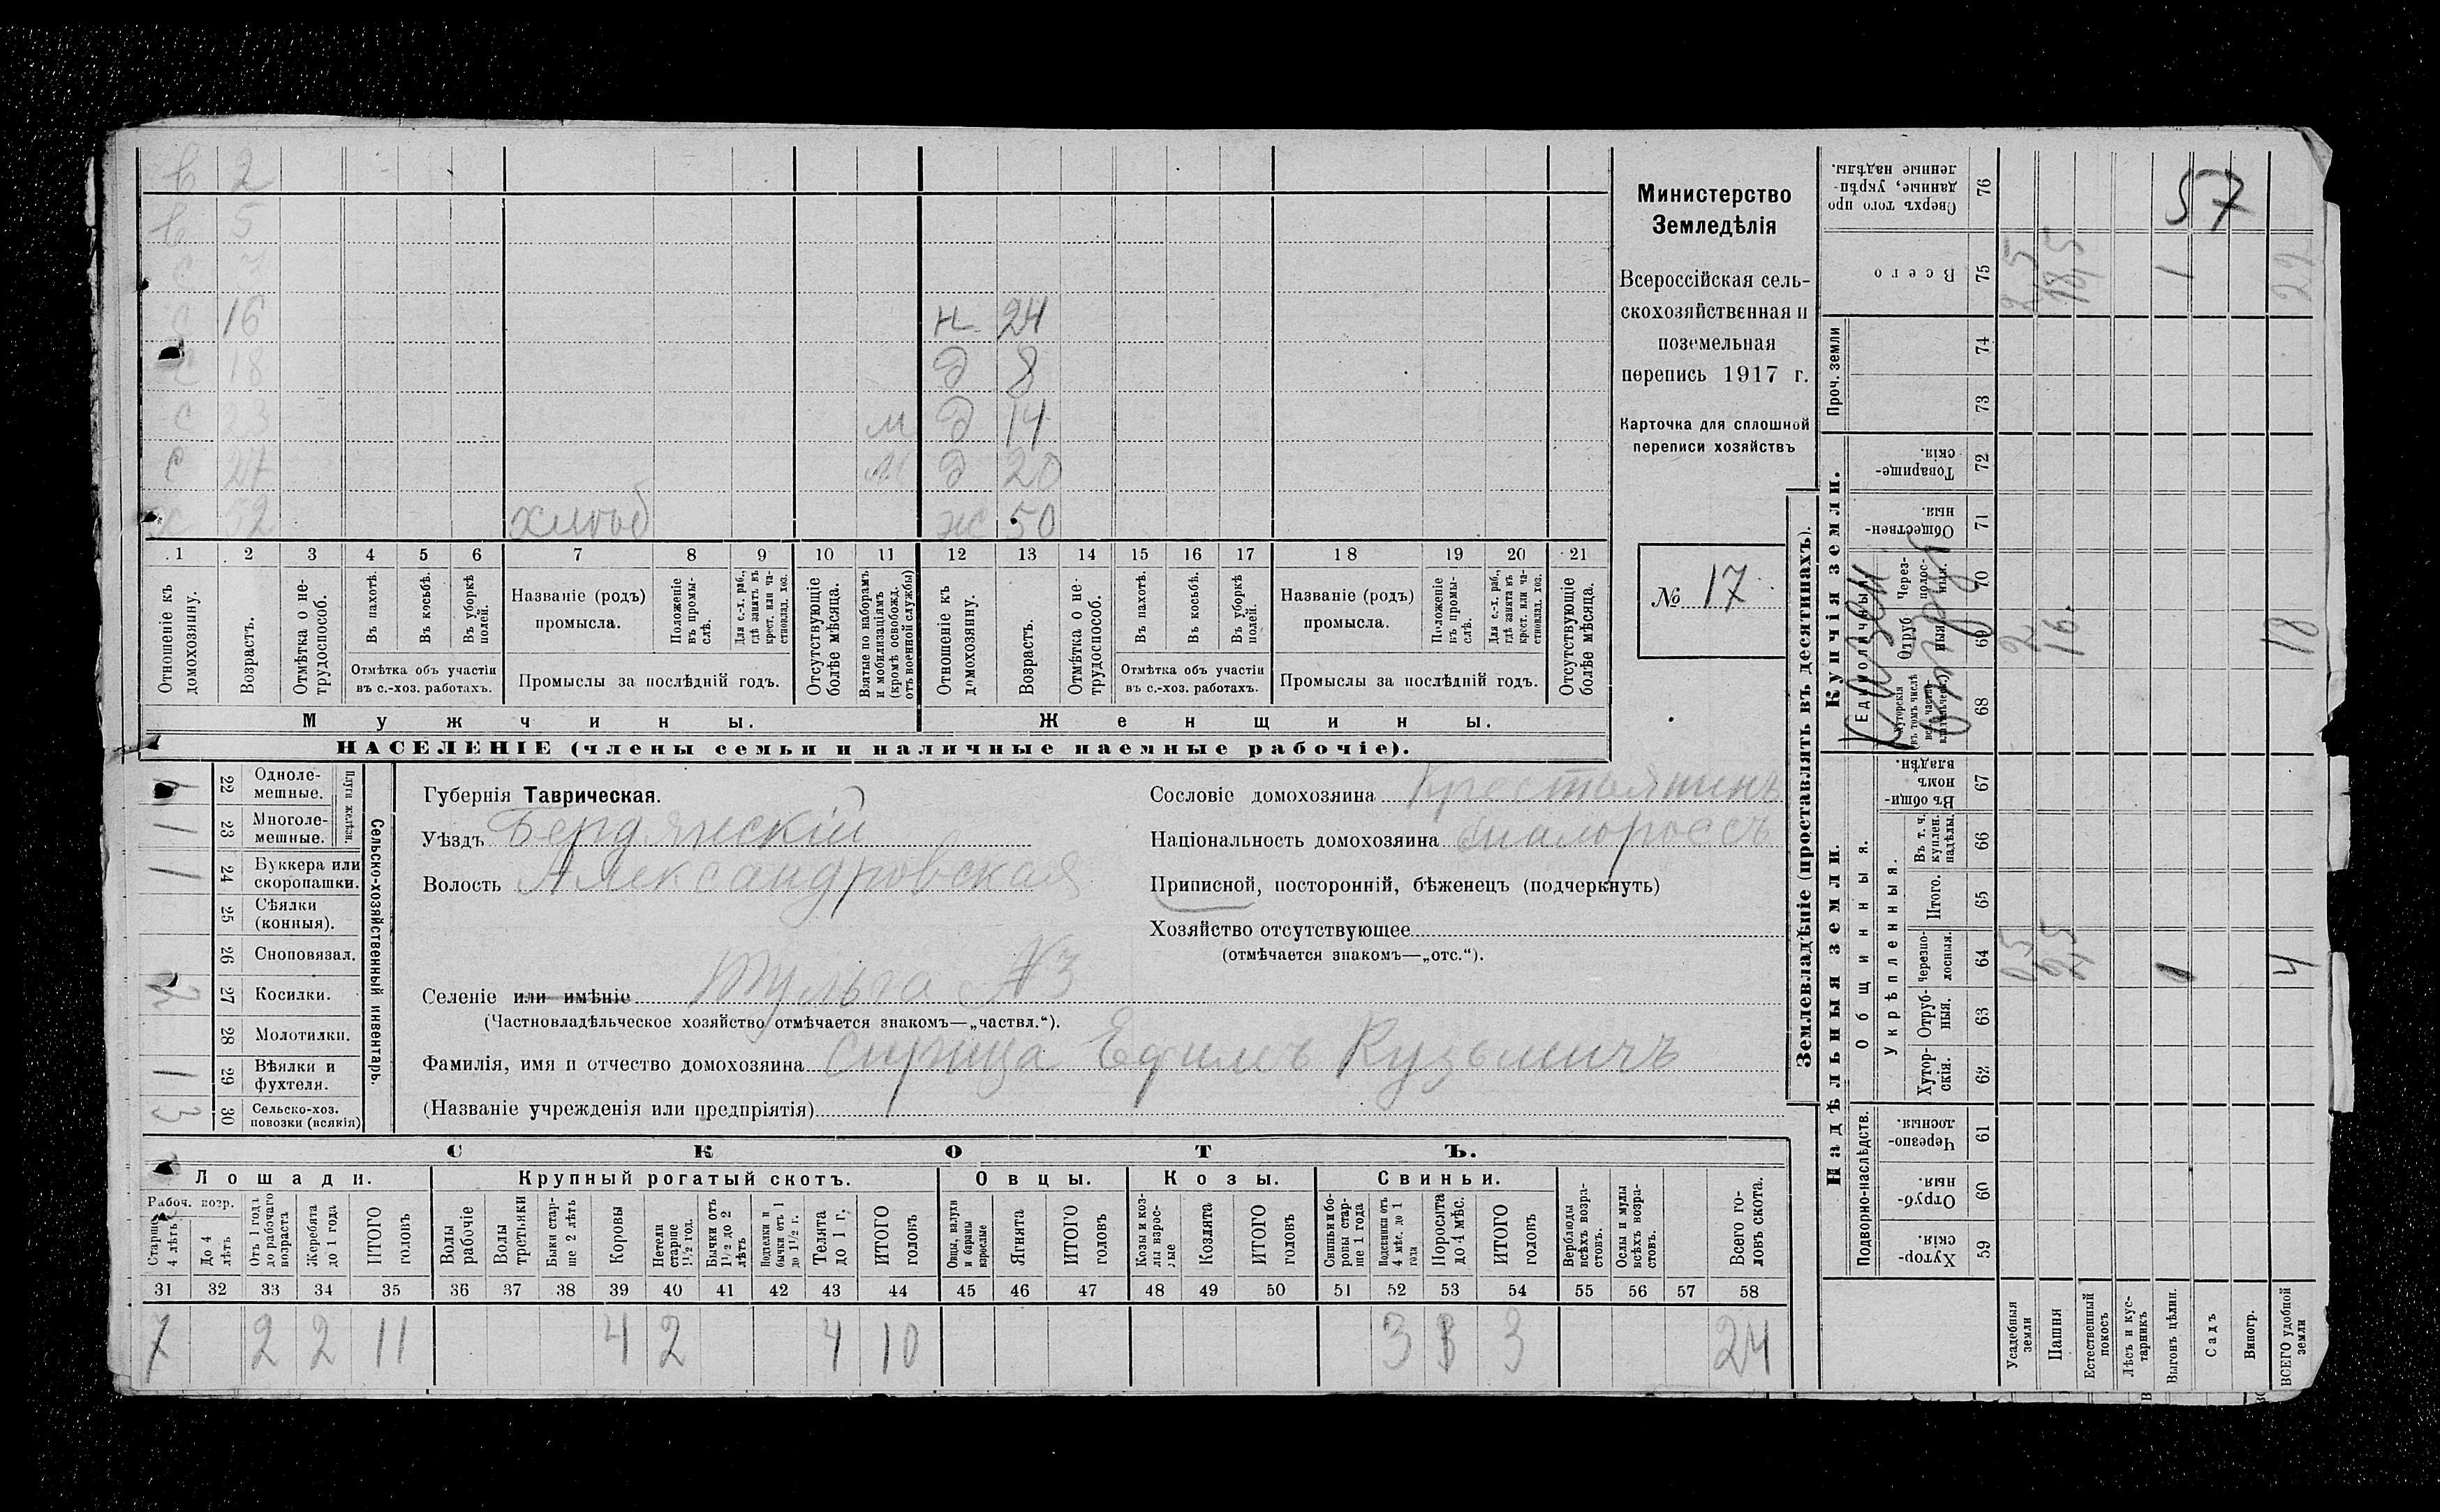 в 2
в 5
с 7
с 16 н 24
с 18 д 8
с 23 м д 14
с 27 м д 20
х 52 хлѣб ж 50
1 2 3 4 5 6 7 8 9 10 11 12 13 14 15 16 17 18 19 20 21
Отношеніе къ домохозяину.
Возрастъ.
Отмѣтка о не-трудоспособ.
Въ пахотѣ.
Въ косьбѣ.
Въ уборкѣ полей.
Отмѣтка объ участіи
въ с.-хоз. работахъ.
Названіе (родъ)
промысла.
Положеніе въ промы-слѣ.
Для с.-х. раб., гдѣ занятъ въ крест. или ча-стновлад. хоз.
Промыслы за послѣдній годъ.
Отсутствующіе болѣе мѣсяца.
Взятые по наборамъ и мобилизаціямъ (кромѣ освобожд. отъ военной службы)
Отношеніе къ домохозяину.
Возрастъ.
Отмѣтка о не-трудоспособ.
Въ пахотѣ.
Въ косьбѣ.
Въ уборкѣ полей.
Отмѣтка объ участіи
въ с.-хоз. работахъ.
Названіе (родъ)
промысла.
Положеніе въ промы-слѣ.
Для с.-х. раб., гдѣ занята въ крест. или ча-стновлад. хоз.
Промыслы за послѣдній годъ.
Отсутствующіе болѣе мѣсяца.
Мужчины.
Женщины.
НАСЕЛЕНІЕ (члены семьи и наличные наемные рабочіе).
Министерство
Земледѣлія
Всероссійская сель-
скохозяйственная и
поземельная
перепись 1917 г.
Карточка для сплошной
переписи хозяйствъ
№ 17
Сельско-хозяйственный инвентарь.
Плуги желѣзн.
22 Одноле-
мешные.
1 23 Многоле-
мешные.
1 24 Буккера или
скоропашки.
25 Сѣялки
(конныя).
26 Сноповязал.
2 27 Косилки.
28 Молотилки.
1 29 Вѣялки и
фухтеля.
3 30 Сельско-хоз.
повозки (всякія)
Губернія Таврическая.
Уѣздъ Бердянскій
Волость Александровская
Селеніе или имѣніе Тульга №3
(Частновладѣльческое хозяйство отмѣчается знакомъ—„частвл.“).
Фамилія, имя и отчество домохозяина Ефимъ Кузьмичъ
(Названіе учрежденія или предпріятія)
Сословіе домохозяина Крестьянинъ
Національность домохозяина малороссъ
Приписной, посторонній, бѣженецъ (подчеркнуть)
Хозяйство отсутствующее
(отмѣчается знакомъ—„отс.“).
СКОТЪ.
Лошади. Крупный рогатый скотъ. Овцы. Козы. Свиньи.
Рабоч. возр.
Старше 4 лѣтъ
До 4 лѣтъ
Отъ 1 года до рабочаго возраста
Жеребята до 1 года
ИТОГО головъ
Волы рабочіе
Волы третьяки
Быки стар-ше 2 лѣтъ
Коровы
Нетели старше 1½ год.
Бычки отъ 1½ до 2 лѣтъ
Подтелки и бычки отъ 1 до 1½ г.
Телята до 1 г.
ИТОГО головъ
Овцы, валухи и бараны взрослые
Ягнята
ИТОГО головъ
Козы и коз-лы взрос-лые
Козлята
ИТОГО головъ
Свиньи и бо-ровы стар-ше 1 года
Подсвинки отъ 4 мѣс. до 1 года
Поросята до 4 мѣс.
ИТОГО головъ
Верблюды всѣхъ возра-стовъ.
Ослы и мулы всѣхъ возра-стовъ.
Всего го-ловъ скота.
31 32 33 34 35 36 37 38 39 40 41 42 43 44 45 46 47 48 49 50 51 52 53 54 55 56 57 58
7 2 2 11 4 2 4 10 3 3 24
Землевладѣніе (проставлять въ десятинахъ).
Сверхъ того про-данные, укрѣп-ленные надѣлы. 76 57
Всего 75 2,5 18,5 1 22
Проч. земли
74
73
Купчія земли.
Товарище-скія. 72
Обществен-ныя. 71
Единоличныя.
Черезпо-лос-ныя. 70
Отруб-ныя 69 2 16. 18
Хуторскія 68
Казен
Надѣльныя земли.
Общинныя.
Въ общин-номъ владѣн. 67
Укрѣпленныя.
Въ т. ч. куплен. надѣлы. 66
Итого. 65
Черезпо-лосныя. 64 0,5 2,5 1 4
Отруб-ныя. 63
Хутор-скія. 62
Подворно-наслѣдств.
Черезпо-лосныя. 61
Отруб-ныя. 60
Хутор-скія. 59
Усадебныя земли
Пашня
Естественный покосъ
Лѣсъ и кус-тарникъ
Выгонъ цѣлин.
Садъ
Виногр.
ВСЕГО удобной земли